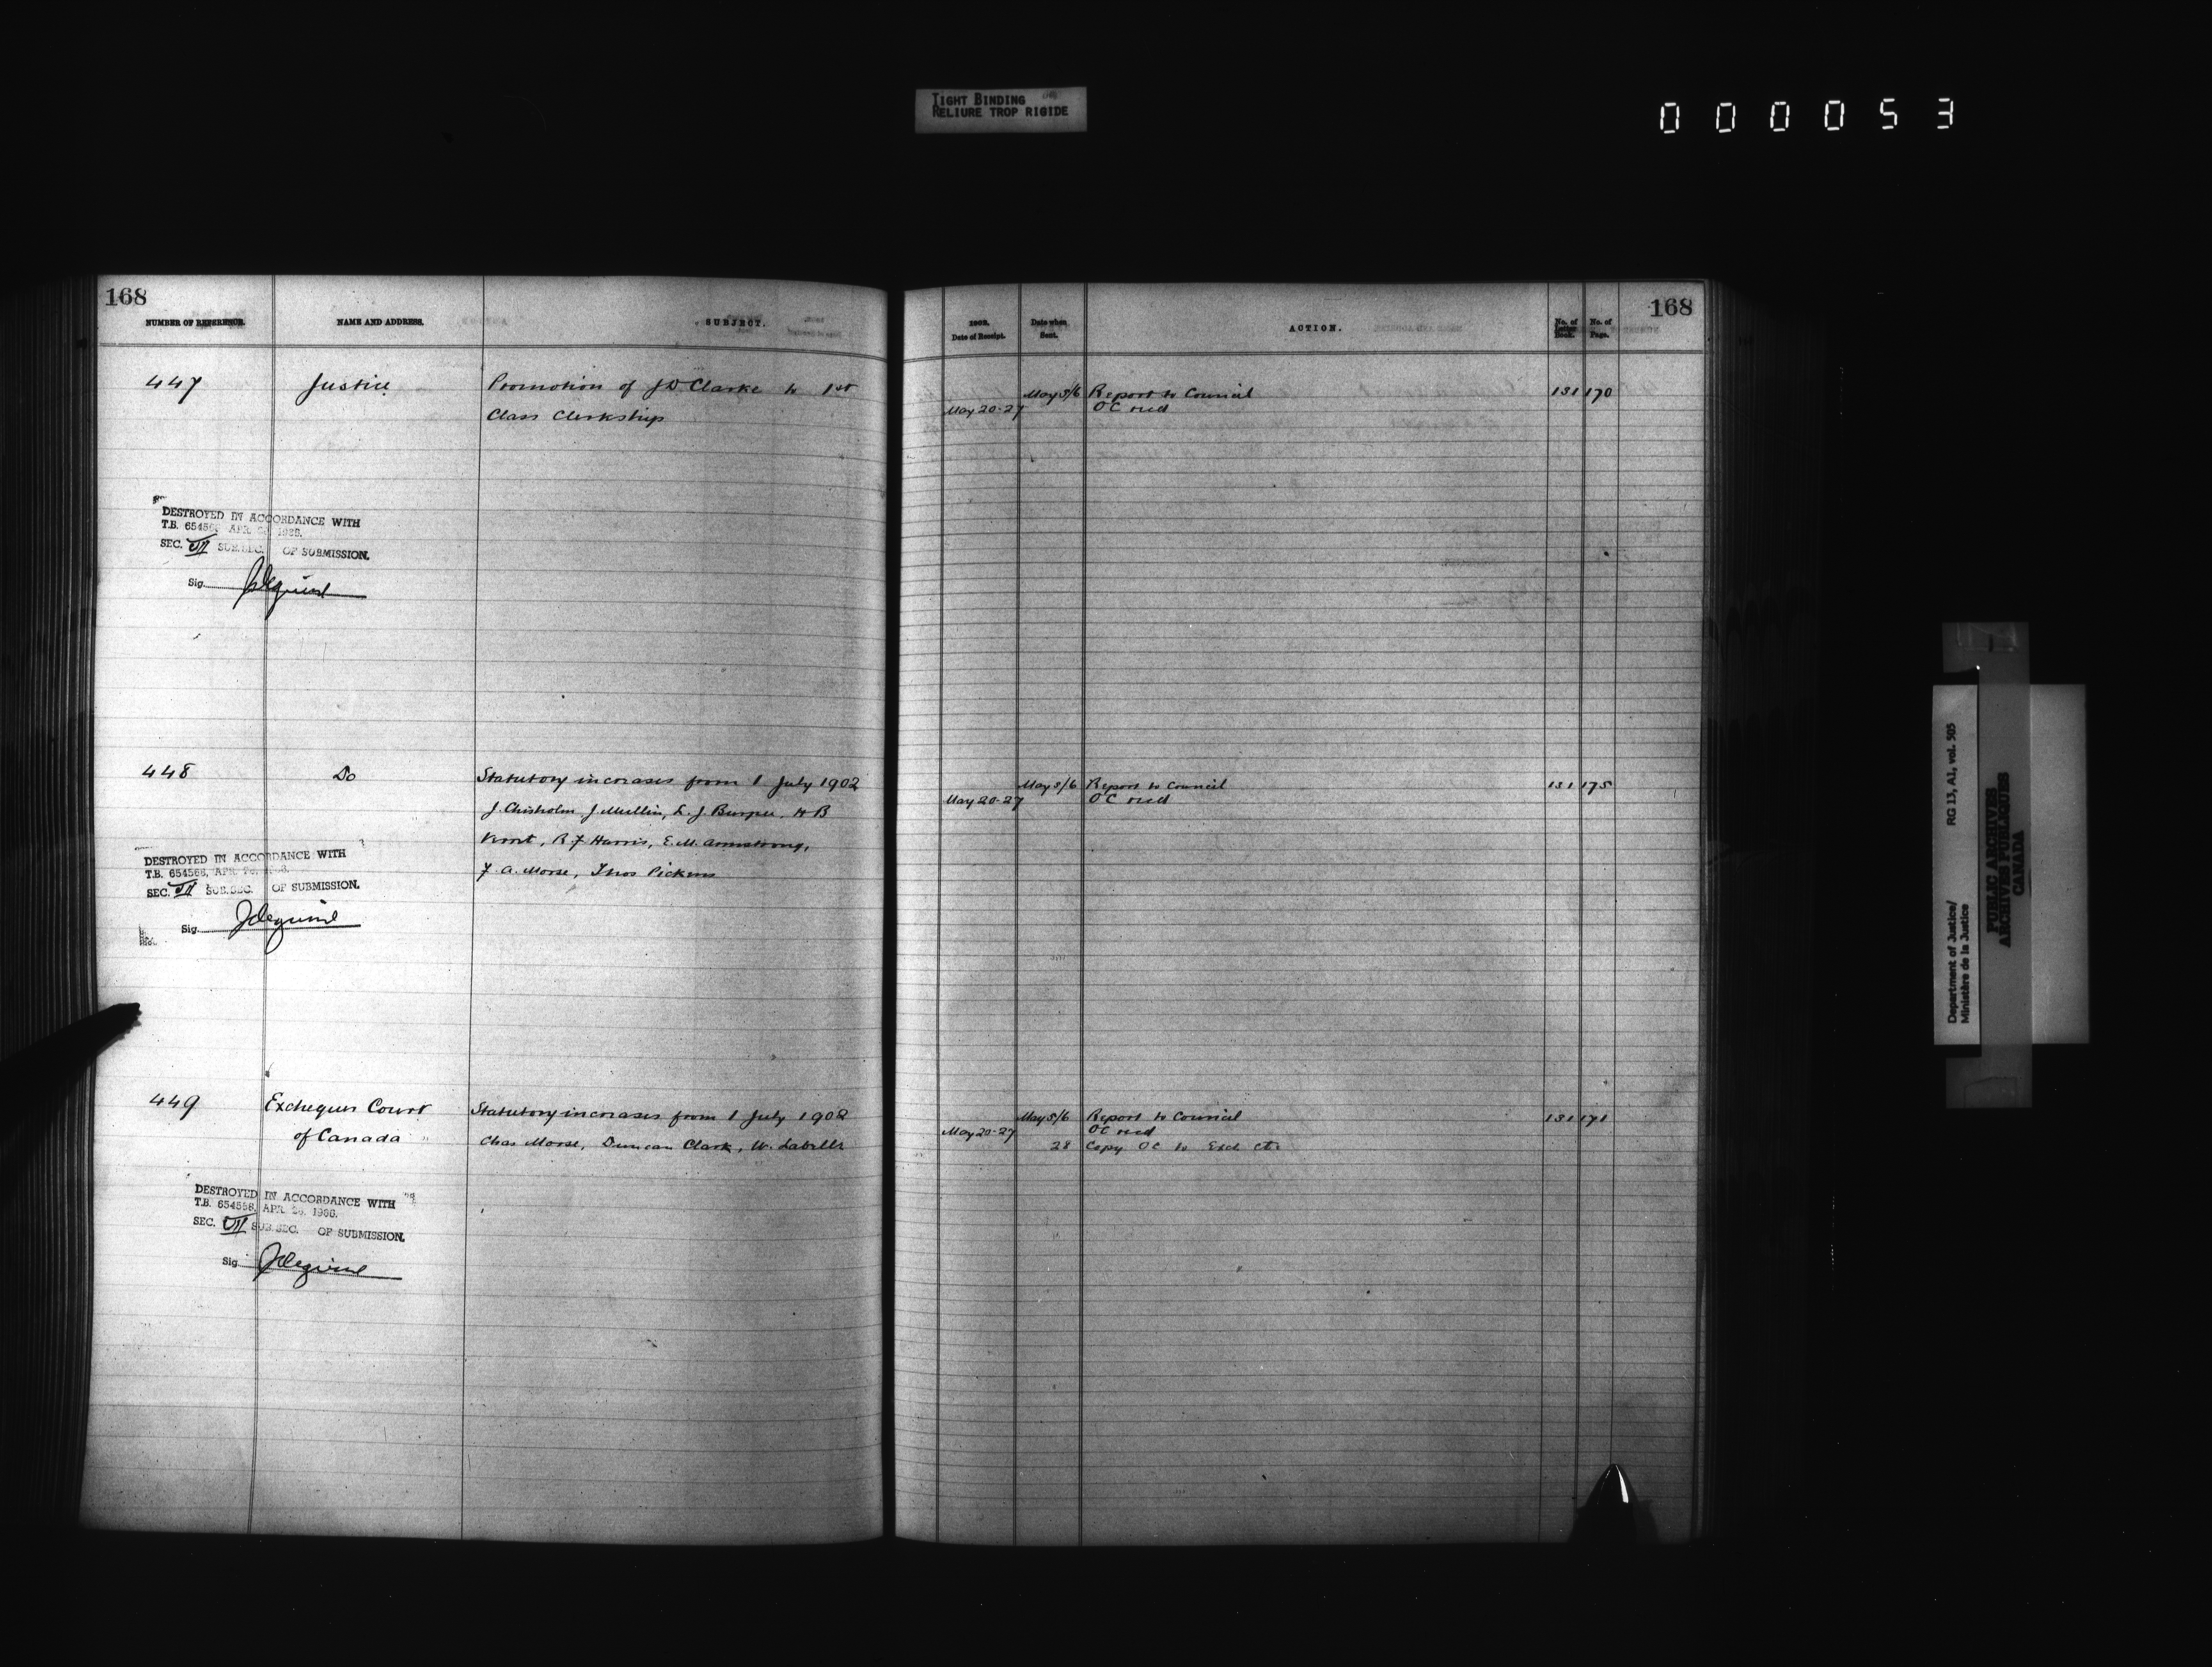 TIGHT BINDING
RELIURE TROP RIGIDE
000053
168
NUMBER OF REFERENCE. NAME AND ADDRESS. SUBJECT.
447 Justice Promotion of J D Clarke to 1st
Class Clerkship
DESTROYED IN ACCORDANCE WITH
T.B. 654566 APR.
SEC. VII SUB.SEC. OF SUBMISSION.
Sig.
448 Do Statutory increases from 1 July 1902
J. Chisholm, J Mullin, L. J Burpee, H B
R F Harris, E. M. Armstrong,
F. A. Morse, Thos Pickens
DESTROYED IN ACCORDANCE WITH
T.B. 654566, APR.
SEC. VII SUB.SEC. OF SUBMISSION.
Sig.
449 Exchequer Court Statutory increases from 1 July 1902
of Canada Chas Morse, Duncan Clark, W. Labelle
DESTROYED IN ACCORDANCE WITH
T.B. 654566, APR.
SEC. VII SUB.SEC. OF SUBMISSION.
Sig.
168
1902. Date of Receipt. Date when Sent. ACTION. No. of Letter Book. No. of Page.
May 5/6 Report to Council 131 170
May 20-27 OC recd
May 5/6 Report to Council 131 175
May 20-27 OC recd
May 5/6 Report to Council 131 171
May 20-27 OC recd
28 Copy OC to Exch Ct.
Department of Justice/
Ministère de la Justice
RG 13, A1, vol. 505
PUBLIC ARCHIVES
ARCHIVES PUBLIQUES
CANADA